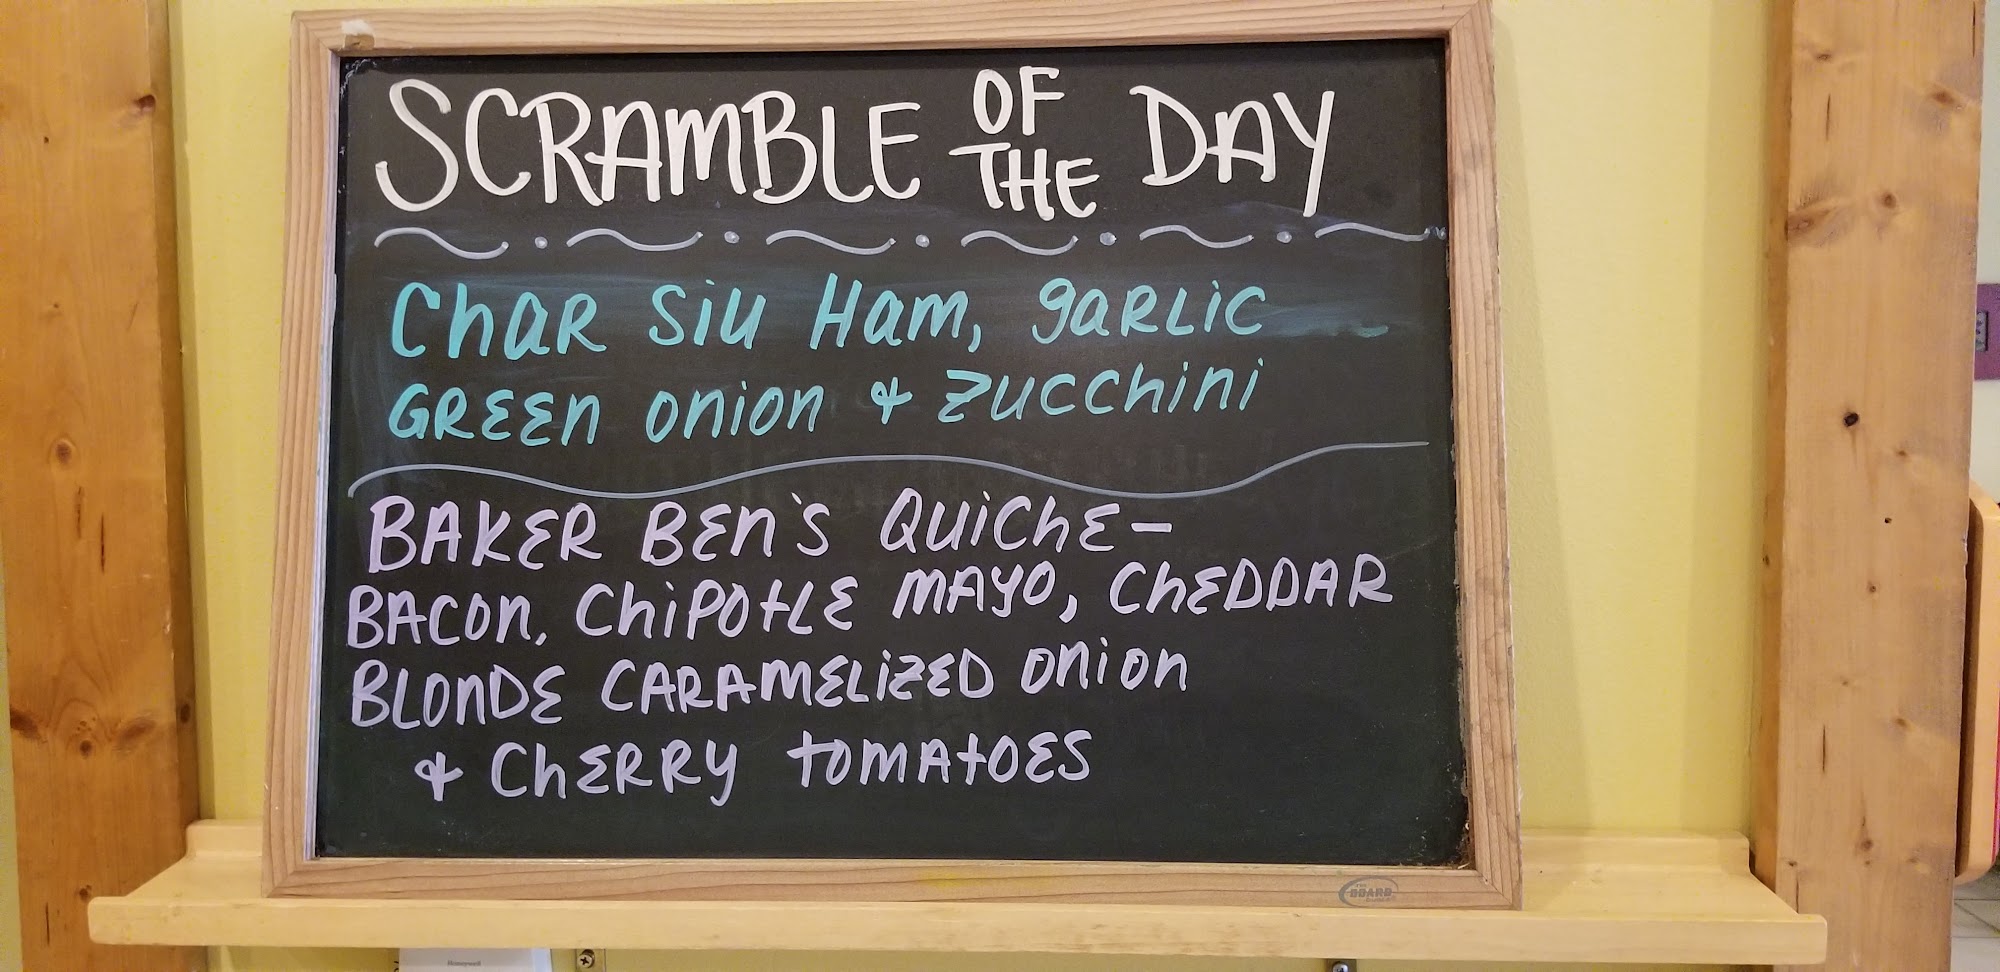 SCRAMBLE OF THE DAY
Char Siu Ham, garlic
Green onion & Zucchini
Baker Ben's Quiche-
Bacon, Chipotle Mayo, Cheddar
Blonde Caramelized Onion
& Cherry Tomatoes
BOARD
Honeywell